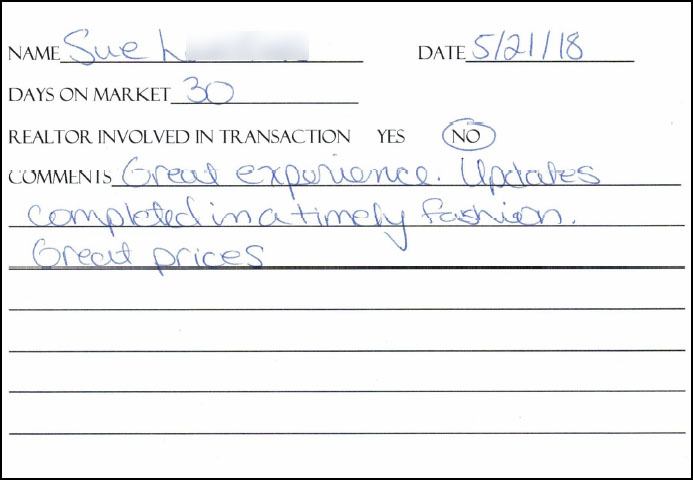 NAME Sue L DATE 5/21/18
DAYS ON MARKET 30
REALTOR INVOLVED IN TRANSACTION YES NO
COMMENTS Great experience. Updates
completed in a timely fashion.
Great prices